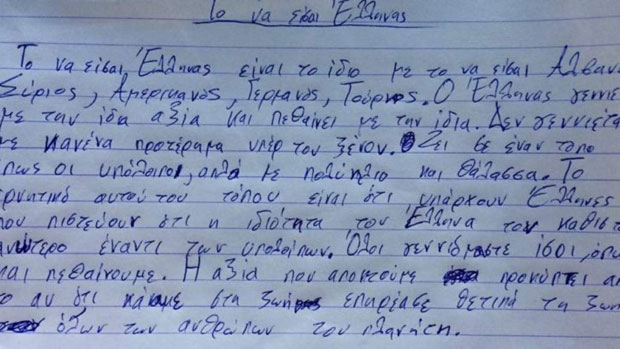 Το να είσαι Έλληνας
Το να είσαι Έλληνας είναι το ίδιο με το να είσαι Αλβανό
Σύριος, Αμερικανός, Γερμανός, Τούρκος. Ο Έλληνας γεννιέ
με την ίδια αξία και πεθαίνει με την ίδια. Δεν γεννιέτα
με κανένα προτέραμα υπέρ του ξένου. Ζει σε έναν τόπο
όπως οι υπόλοιποι, απλά με πολύ ήλιο και θάλασσα. Το
αρνητικό αυτού του τόπου είναι ότι υπάρχουν Έλληνες
που πιστεύουν ότι η ιδιότητα του Έλληνα τον καθιστ
ανώτερο έναντι των υπολοίπων. Όλοι γεννιόμαστε ίσοι, όπω
και πεθαίνουμε. Η αξία που αποκτούμε προκύπτει απ
το αν ότι κάναμε στη ζωή επηρέασε θετικά τη ζωή
όλων των ανθρώπων του πλανήτη.